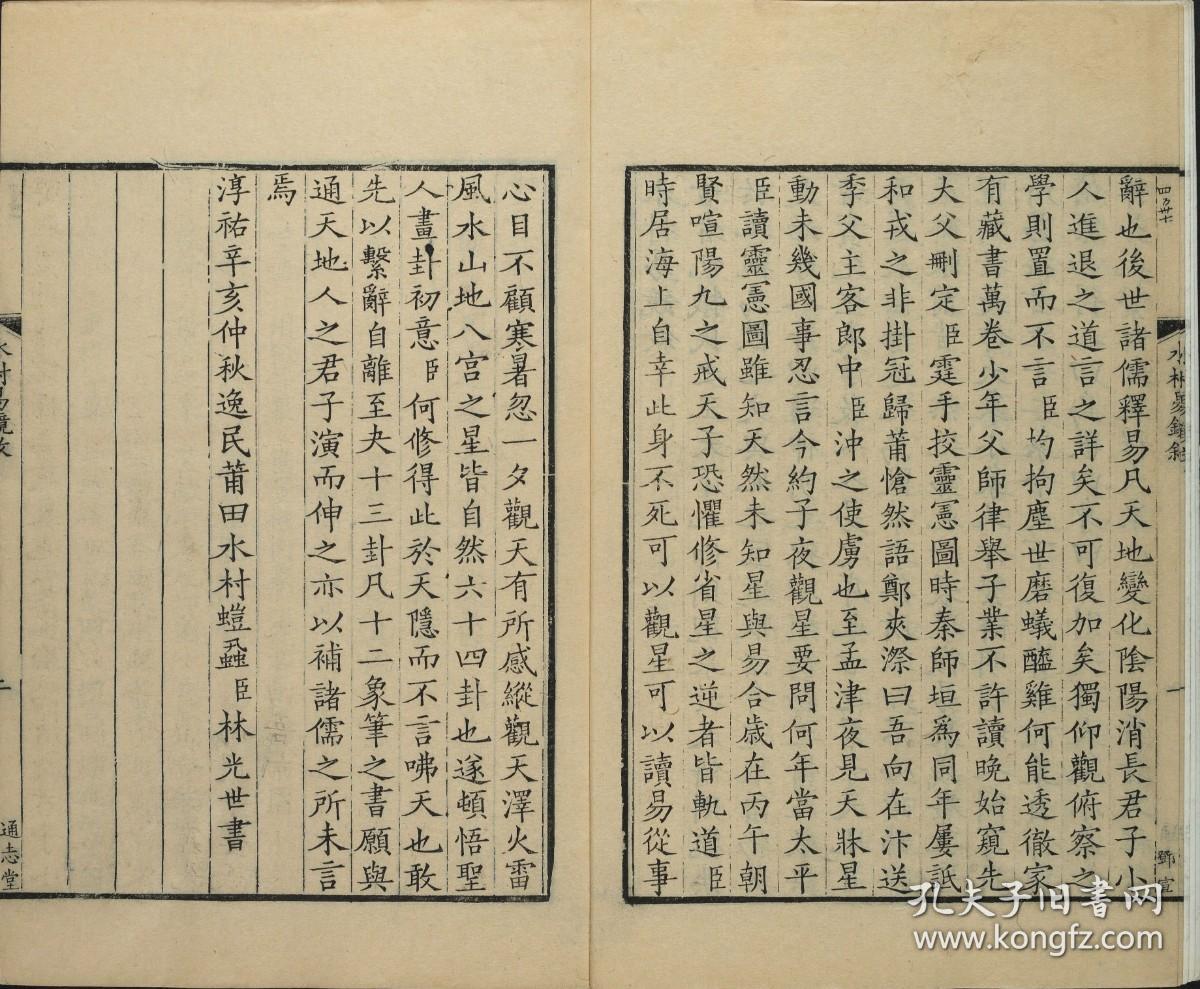 四百卅
水村易鏡敘
一
鄧宣
辭也後世諸儒釋易凡天地變化陰陽消長君子小
人進退之道言之詳矣不可復加矣獨仰觀俯察之
學則置而不言臣灼拘塵世磨蟻醯雞何能透徹家
有藏書萬卷少年父師律舉子業不許讀晚始窺先
大父刪定臣霆手挍靈憲圖時秦師垣爲同年屢詆
和戎之非掛冠歸莆愴然語鄭夾漈曰吾向在汴送
季父主客郎中臣沖之使虜也至孟津夜見天牀星
動未幾國事忍言今約子夜觀星要問何年當太平
臣讀靈憲圖雖知天然未知星與易合歲在丙午朝
賢喧陽九之戒天子恐懼修省星之逆者皆軌道臣
時居海上自幸此身不死可以觀星可以讀易從事
心目不顧寒暑忽一夕觀天有所感縱觀天澤火雷
風水山地八宮之星皆自然六十四卦也遂頓悟聖
人畫卦初意臣何修得此於天隱而不言咈天也敢
先以繫辭自離至夬十三卦凡十二象筆之書願與
通天地人之君子演而伸之亦以補諸儒之所未言
焉
淳祐辛亥仲秋逸民莆田水村螘蝨臣林光世書
水村易鏡敘
二
通志堂
孔夫子旧书网
www.kongfz.com